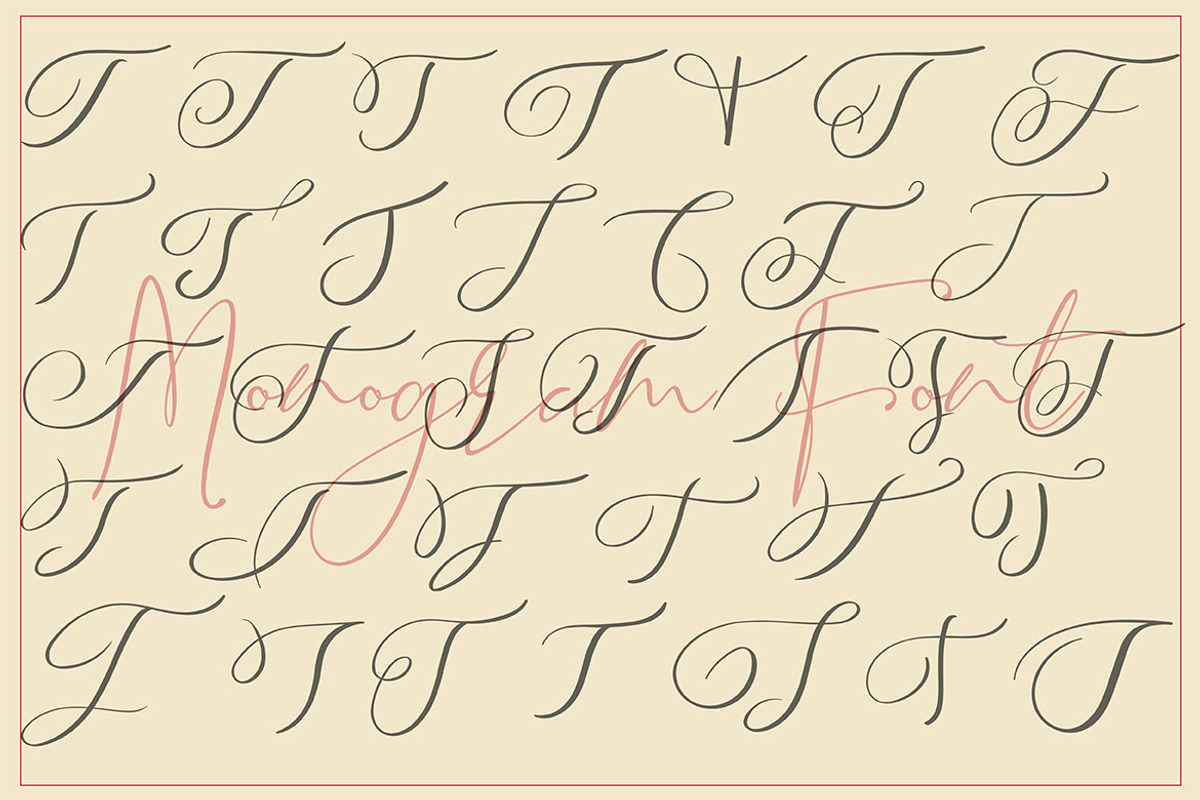 T T T T T T T
T T T T T T T
T T T T T T T
Monogram Font
T T T T T T
T T T T T T T